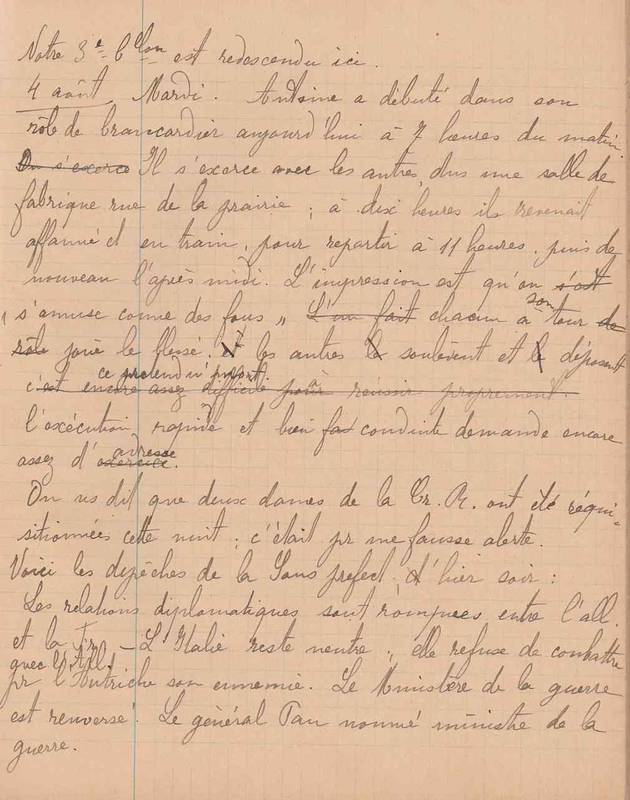 Notre 3e b^elon est redescendu ici.
4 août, Mardi. Antoine a débuté dans son
rôle de brancardier aujourd'hui à 7 heures du matin.
On s'exerce Il s'exerce avec les autres, dns une salle de
fabrique rue de la prairie ; à dix heures ils revenait
affamé et en train, pour repartir à 11 heures, puis de
nouveau l'après midi. L'impression est qu'on s'est
"s'amuse comme des fous" L'un fait chacun à son tour de
rôle joue le blessé. les autres le soulèvent et le déposent
ce prétendu
c'est encore assez difficile pour réussir proprement.
l'exécution rapide et bien fai conduite demande encore
assez d'exercice. adresse
On ns dit que deux dames de la Cr. R. ont été réqui-
sitionnées cette nuit ; c'était pr une fausse alerte.
Voici les dépêches de la Sous prefect. d'hier soir :
Les relations diplomatiques sont rompues entre l'all.
et la Fr. - L'Italie reste neutre ; elle refuse de combattre
avec l'All.
pr l'Autriche son ennemie. Le Ministère de la guerre
est renversé. Le général Pau nommé ministre de la
guerre.